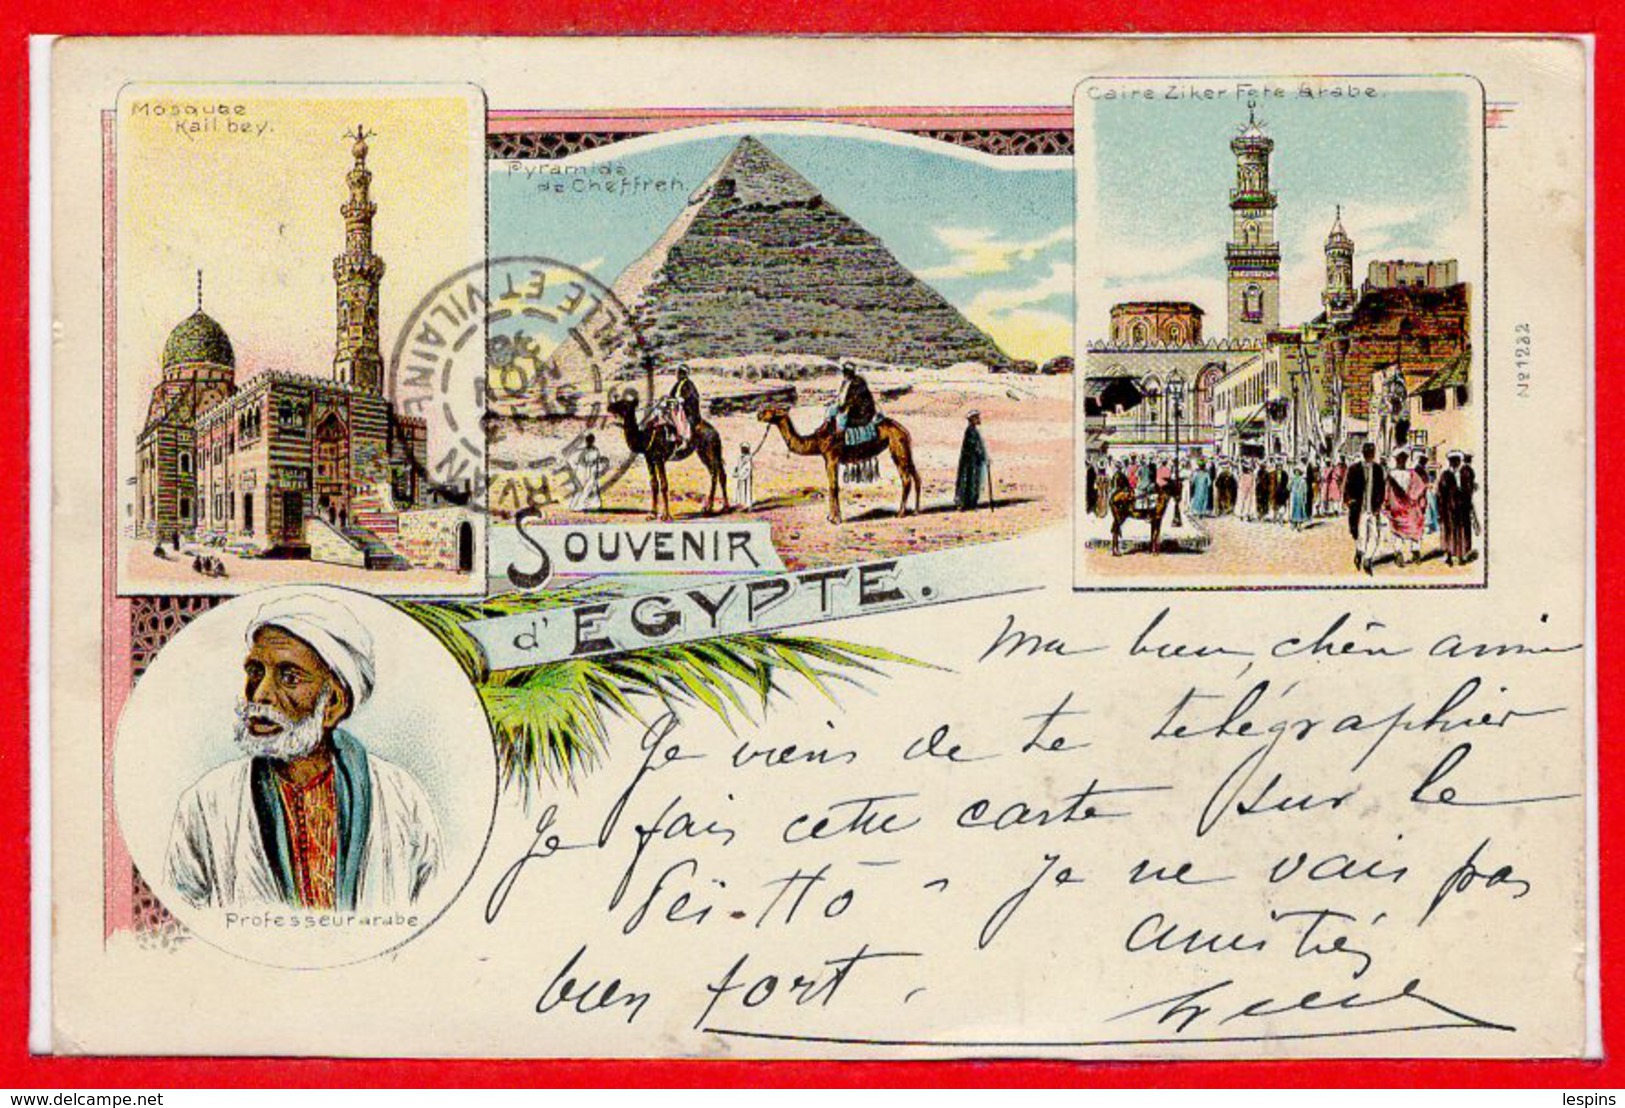 Mosquee
Kail bey.
Pyramide
de Cheffren.
Caire Ziker Fete Arabe.
No 1232
SERVAN
ILLE ET VILAINE
SOUVENIR
d'EGYPTE.
Professeur arabe.
Ma bien chère amie
Je viens de te télégraphier
Je fais cette carte sur le
je ne vais pas
bien fort. amitiés
www.delcampe.net
lespins